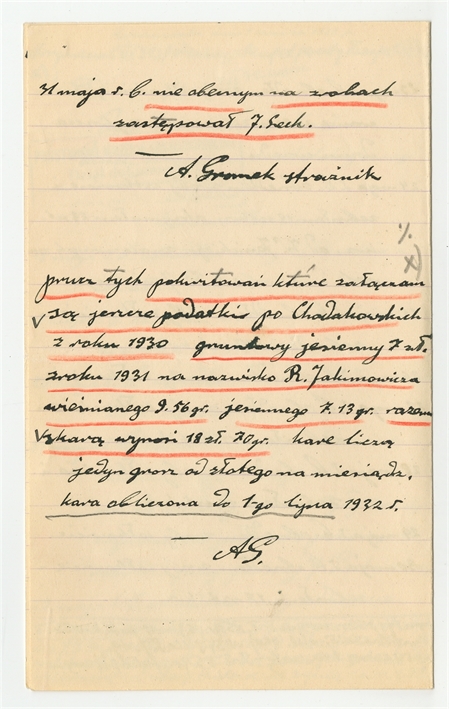 31 maja r. b. nie obecnym na zrobach
zastępował J. Sech.
A. Gromek strażnik
%
x)
prucz tych pokwitowań które załączam
są jeszcze podatki po Chodakowskich
z roku 1930 gruntowy jesienny 7 zł.
z roku 1931 na nazwisko R. Jakimowicza
wiośnianego 9.56 gr. jesiennego 7.13 gr. razem
z karą wynosi 18 zł. 70 gr. kare liczą
jedyn grosz od złotego na miesiądz.
kara obliczona do 1-go lipca 1932 r.
AG.